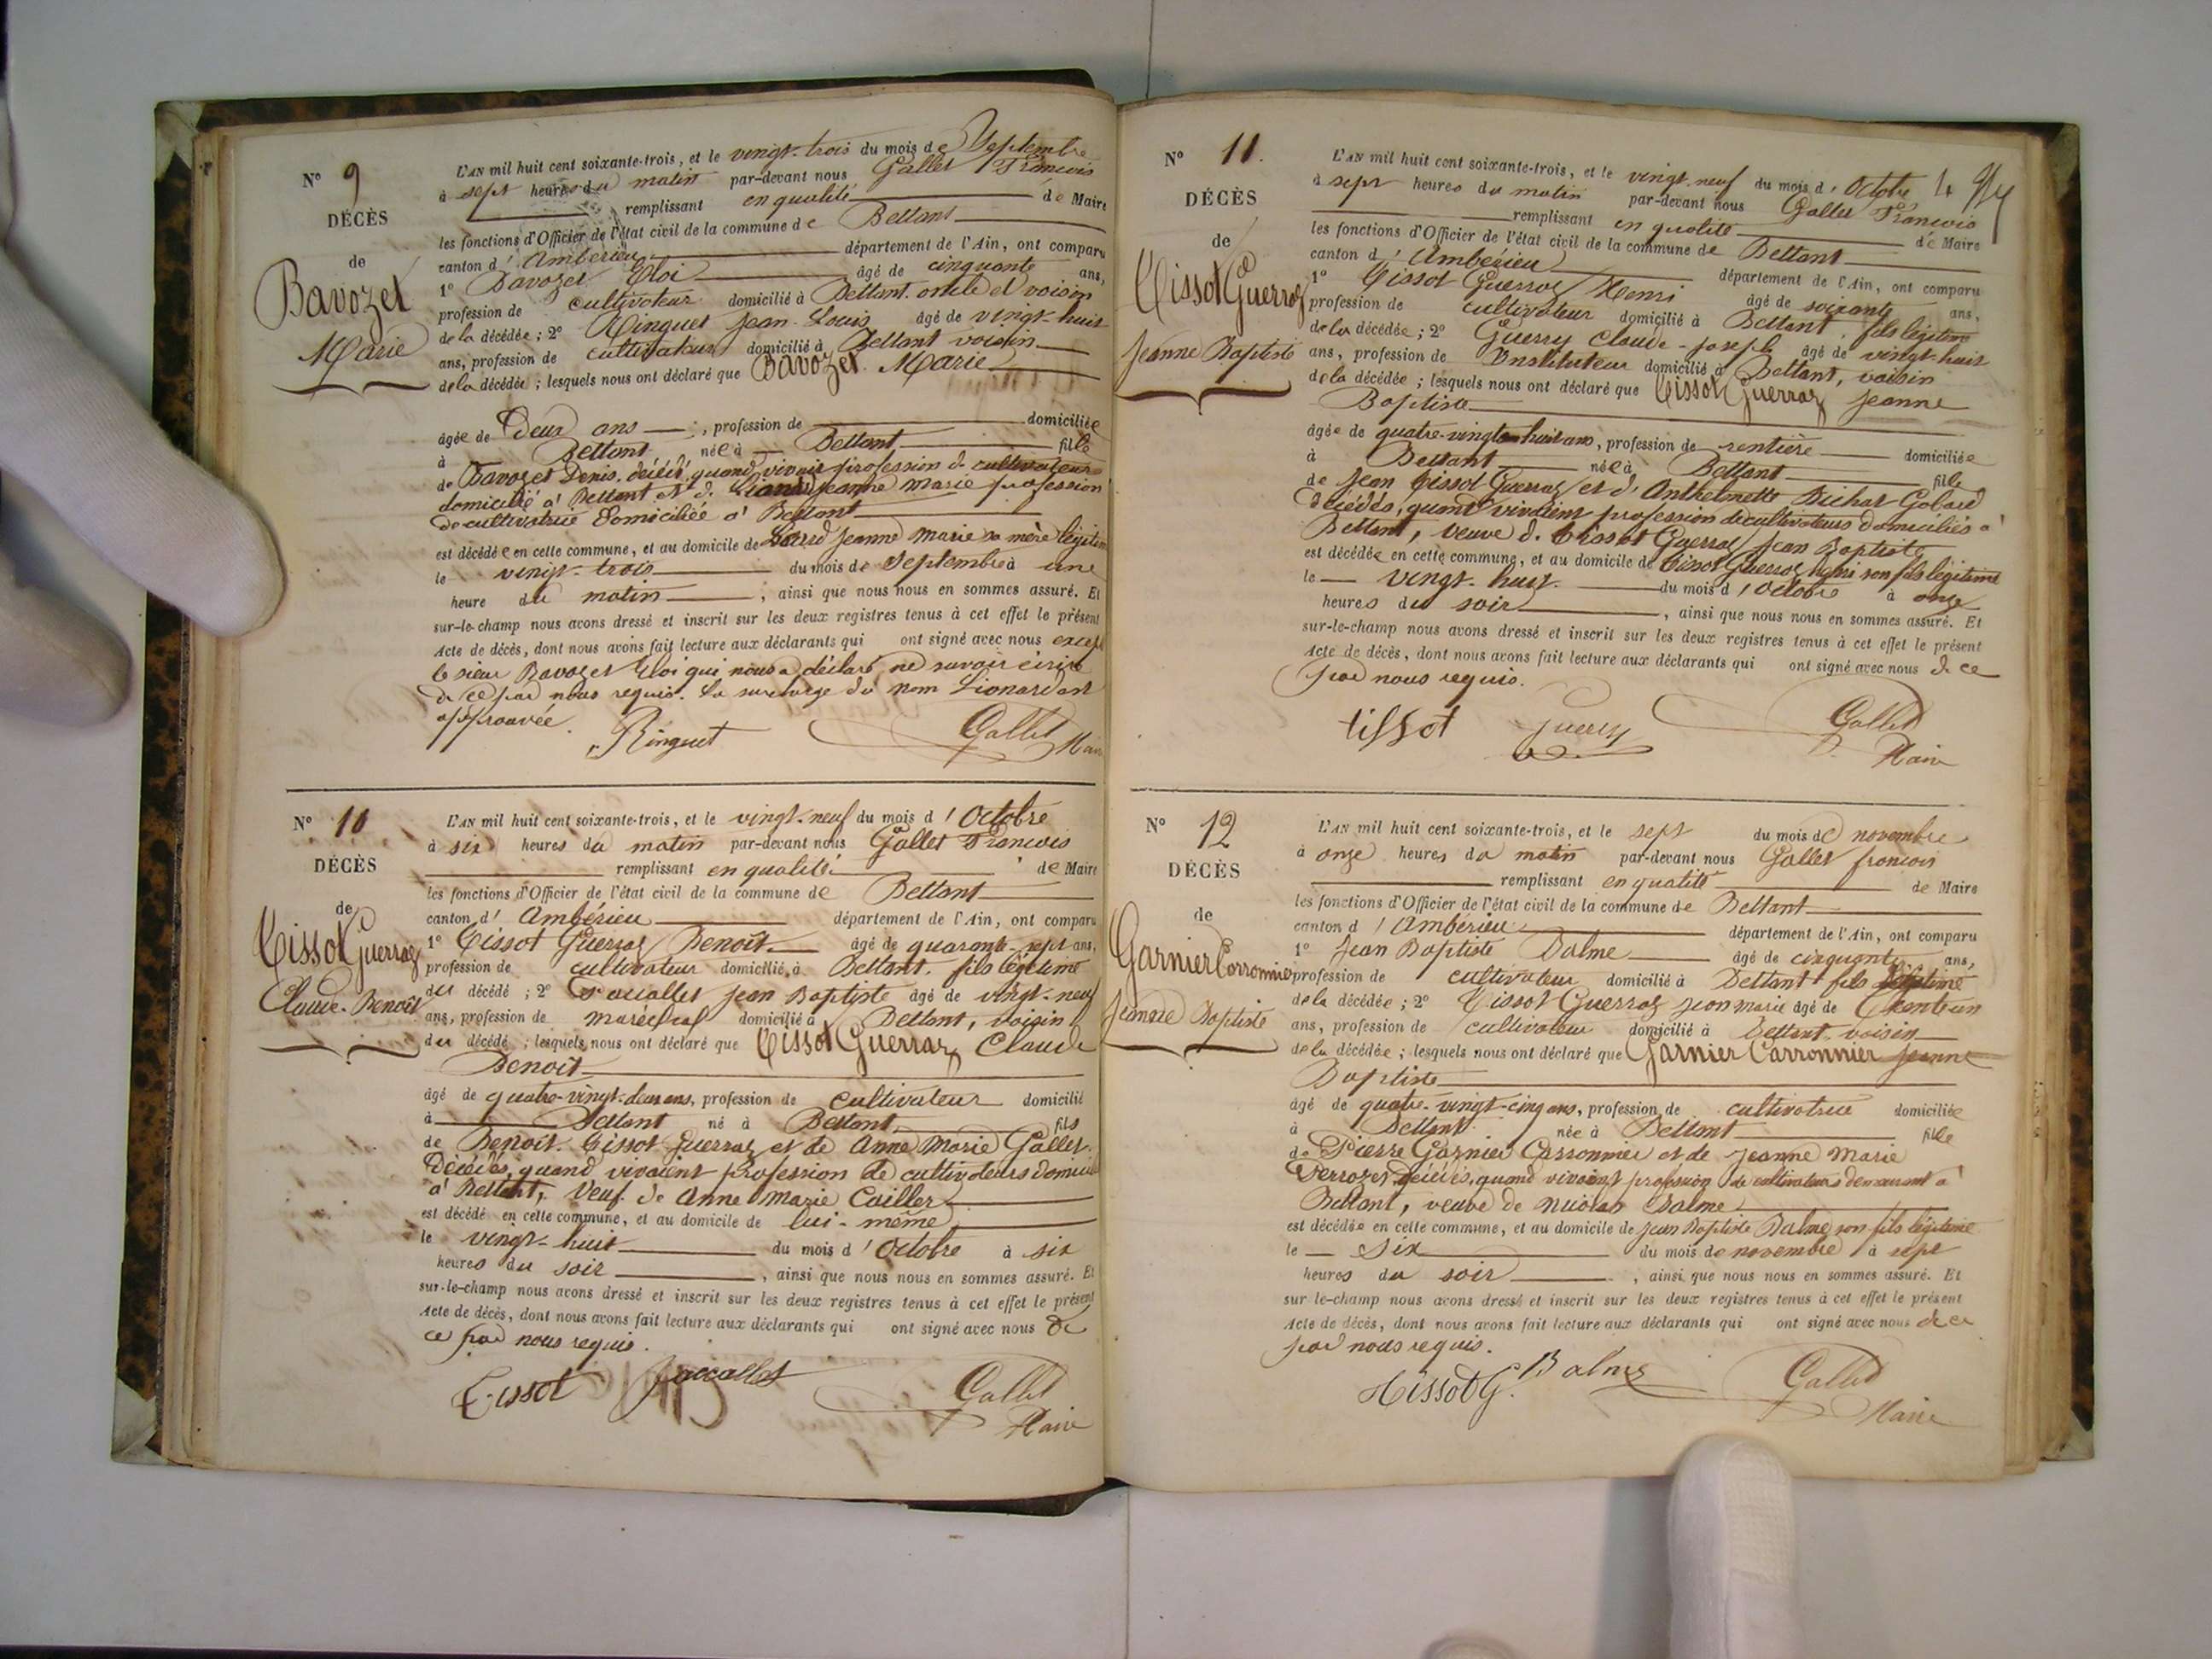 N° 9
DÉCÈS
de
Bavozet
Marie
L'AN mil huit cent soixante-trois, et le vingt-trois du mois de Septembre
à sept heures du matin par-devant nous Gallet François
remplissant en qualité de Maire
les fonctions d'Officier de l'état civil de la commune de Bettant
canton d'Ambérieu département de l'Ain, ont comparu
1° Bavozet Eloi âgé de cinquante ans,
profession de cultivateur domicilié à Bettant oncle et voisin
de la décédée ; 2° Ringuet Jean-Louis âgé de vingt-huit
ans, profession de cultivateur domicilié à Bettant voisin
de la décédée ; lesquels nous ont déclaré que Bavozet Marie
âgée de Deux ans, profession de domiciliée
à Bettant née à Bettant fille
de Bavozet Denis, décédé, quand vivait profession de cultivateur
domicilié à Bettant et de Lionard Jeanne Marie profession
de cultivatrice domiciliée à Bettant
est décédée en cette commune, et au domicile de Jeanne Marie sa mère légitime
le vingt-trois du mois de Septembre à une
heure du matin, ainsi que nous nous en sommes assuré. Et
sur-le-champ nous avons dressé et inscrit sur les deux registres tenus à cet effet le présent
Acte de décès, dont nous avons fait lecture aux déclarants qui ont signé avec nous excepté
le sieur Bavozet Eloi qui nous a déclaré ne savoir écrire
de ce par nous requis. La surcharge du nom Lionard est
approuvée.
Ringuet Gallet Maire
N° 10
DÉCÈS
de
Tissot Guerraz
Claude-Benoît
L'AN mil huit cent soixante-trois, et le vingt-neuf du mois d'Octobre
à six heures du matin par-devant nous Gallet François
remplissant en qualité de Maire
les fonctions d'Officier de l'état civil de la commune de Bettant
canton d'Ambérieu département de l'Ain, ont comparu
1° Tissot Guerraz Benoît âgé de quarante-sept ans,
profession de cultivateur domicilié à Bettant, fils légitime
du décédé ; 2° Jacallet Jean Baptiste âgé de vingt-neuf
ans, profession de maréchal domicilié à Bettant, voisin
du décédé ; lesquels nous ont déclaré que Tissot Guerraz Claude
Benoît
âgé de quatre-vingt-deux ans, profession de cultivateur domicilié
à Bettant né à Bettant fils
de Benoît Tissot Guerraz et de Anne Marie Gallet
Décédés, quand vivaient profession de cultivateurs domiciliés
à Bettant, Veuf de Anne Marie Cailler
est décédé en cette commune, et au domicile de lui-même
le vingt-huit du mois d'Octobre à six
heures du soir, ainsi que nous nous en sommes assuré. Et
sur-le-champ nous avons dressé et inscrit sur les deux registres tenus à cet effet le présent
Acte de décès, dont nous avons fait lecture aux déclarants qui ont signé avec nous de
ce par nous requis.
Tissot Jaccallet Gallet
Maire
N° 11.
DÉCÈS
de
Tissot Guerraz
Jeanne Baptiste
L'AN mil huit cent soixante-trois, et le vingt-neuf du mois d'Octobre
à sept heures du matin par-devant nous Gallet François
remplissant en qualité de Maire
les fonctions d'Officier de l'état civil de la commune de Bettant
canton d'Ambérieu département de l'Ain, ont comparu
1° Tissot Guerraz Henri âgé de soixante ans,
profession de cultivateur domicilié à Bettant fils légitime
de la décédée ; 2° Guerry Claude-Joseph âgé de vingt-huit
ans, profession de Instituteur domicilié à Bettant, voisin
de la décédée ; lesquels nous ont déclaré que Tissot Guerraz Jeanne
Baptiste
âgée de quatre-vingt-huit ans, profession de rentière domiciliée
à Bettant née à Bettant fille
de Jean Tissot Guerraz et d'Anthelmette Bichat Gobard
décédés, quand vivaient profession de cultivateurs domiciliés à
Bettant, veuve de Tissot Guerraz Jean Baptiste
est décédée en cette commune, et au domicile de Tissot Guerraz Henri son fils légitime
le vingt-huit du mois d'Octobre à onze
heures du soir, ainsi que nous nous en sommes assuré. Et
sur-le-champ nous avons dressé et inscrit sur les deux registres tenus à cet effet le présent
Acte de décès, dont nous avons fait lecture aux déclarants qui ont signé avec nous de ce
par nous requis.
tissot Guerry Gallet
Maire
N° 12
DÉCÈS
de
Garnier Carronnier
Jeanne Baptiste
L'AN mil huit cent soixante-trois, et le sept du mois de novembre
à onze heures du matin par-devant nous Gallet françois
remplissant en qualité de Maire
les fonctions d'Officier de l'état civil de la commune de Bettant
canton d'Ambérieu département de l'Ain, ont comparu
1° Jean Baptiste Balme âgé de cinquante ans,
profession de cultivateur domicilié à Bettant fils légitime
de la décédée ; 2° Tissot Guerraz Jean Marie âgé de Trente un
ans, profession de cultivateur domicilié à Bettant voisin
de la décédée ; lesquels nous ont déclaré que Garnier Carronnier Jeanne
Baptiste
âgé de quatre-vingt-cinq ans, profession de cultivatrice domiciliée
à Bettant née à Bettant fille
de Pierre Garnier Carronnier et de Jeanne Marie
décédés, quand vivaient profession de cultivateurs demeurant à
Bettant, veuve de Nicolas Balme
est décédée en cette commune, et au domicile de Jean Baptiste Balme son fils légitime
le six du mois de novembre à sept
heures du soir, ainsi que nous nous en sommes assuré. Et
sur-le-champ nous avons dressé et inscrit sur les deux registres tenus à cet effet le présent
Acte de décès, dont nous avons fait lecture aux déclarants qui ont signé avec nous de ce
par nous requis.
Tissot G. Balme Gallet
Maire